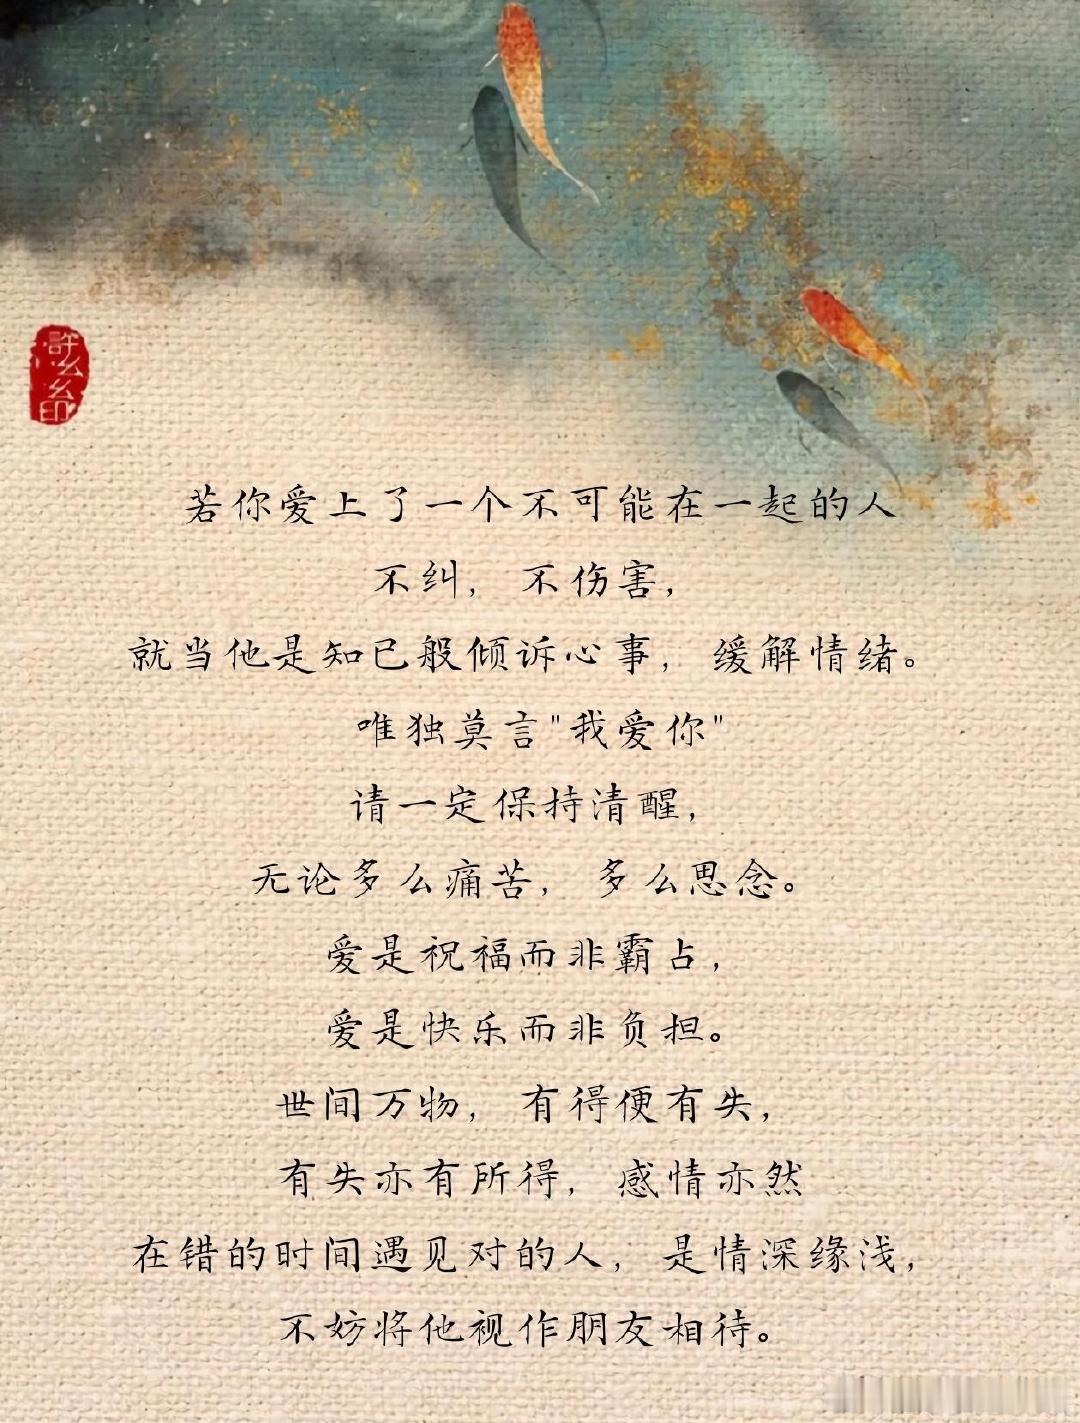 若你爱上了一个不可能在一起的人
不纠，不伤害，
就当他是知已般倾诉心事，缓解情绪。
唯独莫言"我爱你"
请一定保持清醒，
无论多么痛苦，多么思念。
爱是祝福而非霸占，
爱是快乐而非负担。
世间万物，有得便有失，
有失亦有所得，感情亦然
在错的时间遇见对的人，是情深缘浅，
不妨将他视作朋友相待。